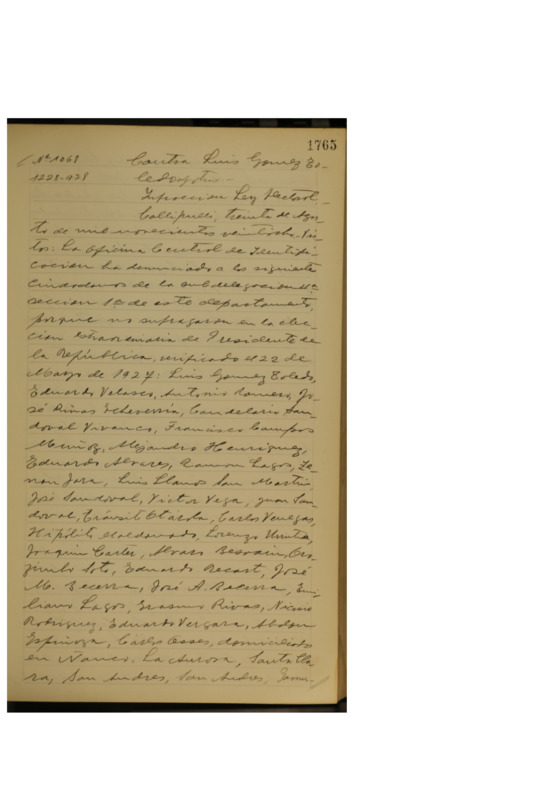 1765
Nº 1068 Contra Luis Gomez To-
1228-928 ledo y otros.-
Infraccion Ley Electoral.-
Collipulli, treinta de Agos-
to de mil novecientos veintiocho. Vis-
tos: La Oficina Central de Identifi-
cacion ha denunciado a los siguientes
ciudadanos de la subdelegacion 11ª
seccion 1ª de este departamento,
porque no sufragaron en la elec-
cion extraordinaria de Presidente de
la República, verificada el 22 de
Mayo de 1927: Luis Gomez Toledo,
Eduardo Velasco, Antonio Romero, Jo-
sé Rivas Echeverría, Candelario San-
doval Vivanco, Francisco Campos
Muñoz, Alejandro Henriquez,
Eduardo Alvarez, Ramon Lagos, Ze-
non Jara, Luis Llanos San Martin,
José Sandoval, Victor Vega, Juan San-
doval, Tránsito Otárola, Carlos Venegas,
Hipólito Maldonado, Lorenzo Urrutia,
Joaquin Carter, Alvaro Besoain, Oro-
zimbo Soto, Eduardo Recart, José
M. Becerra, José A. Becerra, Emi-
liano Lagos, Erasmo Rivas, Nicanor
Rodriguez, Eduardo Vergara, Abdon
Espinoza, Carlos Osses, domiciliados
en Ñanco, La Aurora, Santa Cla-
ra, San Andres, San Andres,